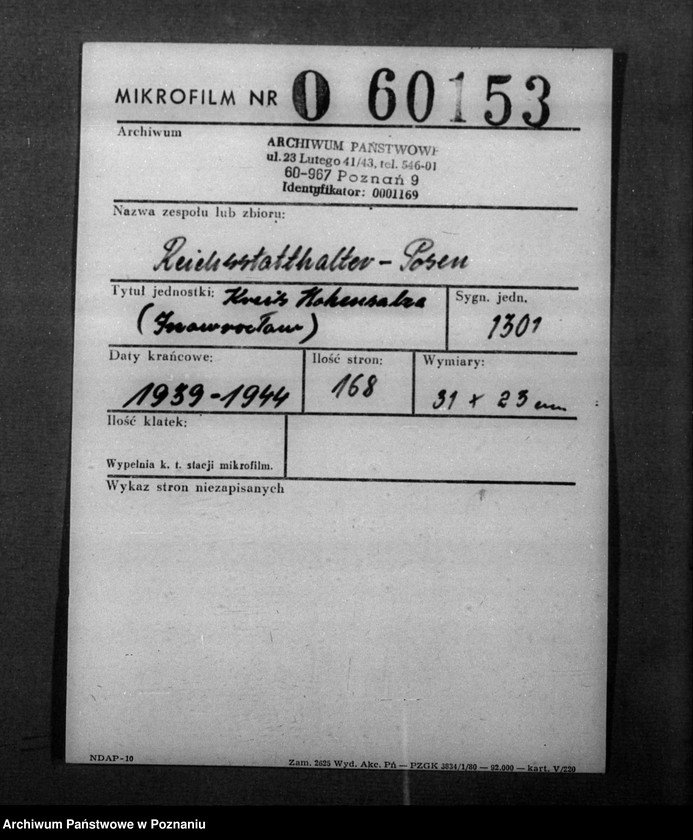 MIKROFILM NR 0 60153
Archiwum
ARCHIWUM PAŃSTWOWE
ul. 23 Lutego 41/43, tel. 546-01
60-967 Poznań 9
Identyfikator: 0001169
Nazwa zespołu lub zbioru:
Reichsstatthalter - Posen
Tytuł jednostki: Kreis Hohensalza
(Inowrocław)
Sygn. jedn.
1301
Daty krańcowe:
1939-1944
Ilość stron:
168
Wymiary:
31 x 23 cm
Ilość klatek:
Wypełnia k. t. stacji mikrofilm.
Wykaz stron niezapisanych
NDAP-10
Zam. 2625 Wyd. Akc. Pń — PZGK 3834/1/80 — 92.000 — kart. V/220
Archiwum Państwowe w Poznaniu